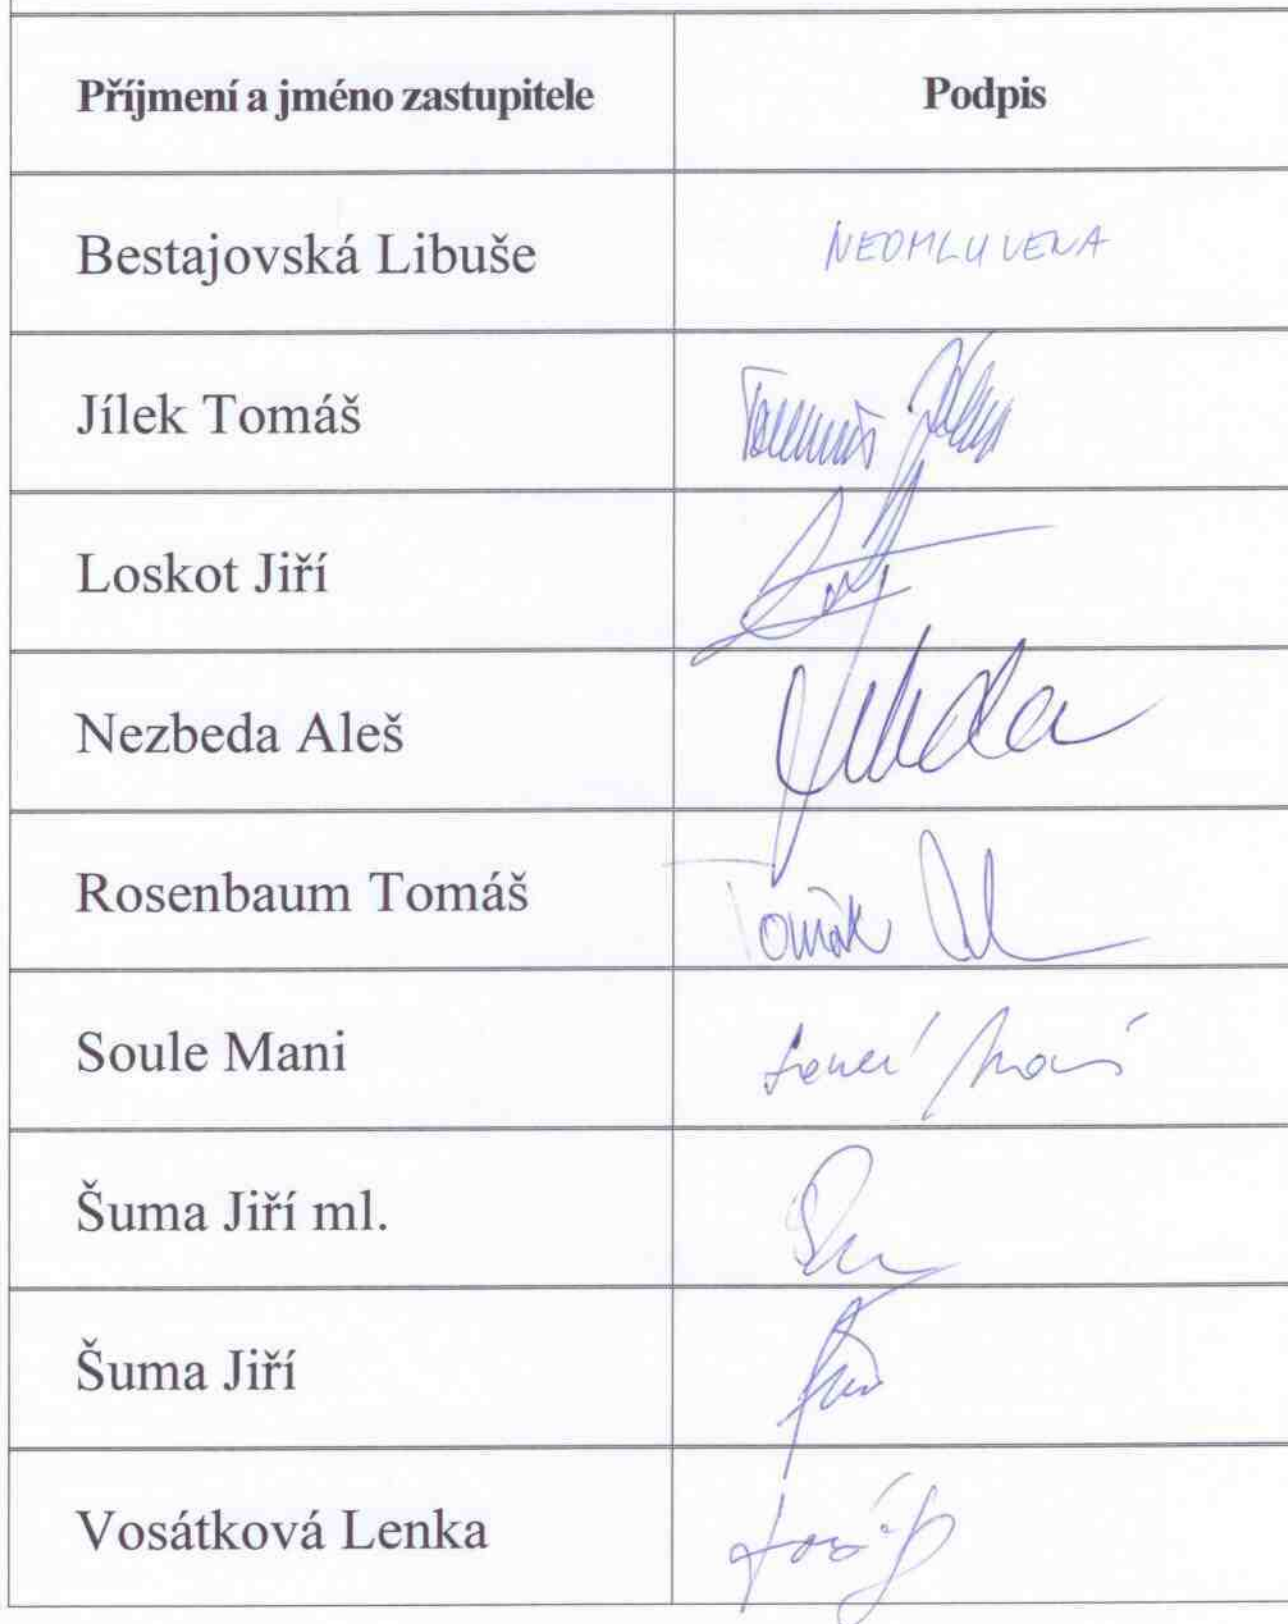 Příjmení a jméno zastupitele Podpis
Bestajovská Libuše NEOMLUVENA
Jílek Tomáš
Loskot Jiří
Nezbeda Aleš
Rosenbaum Tomáš
Soule Mani
Šuma Jiří ml.
Šuma Jiří
Vosátková Lenka